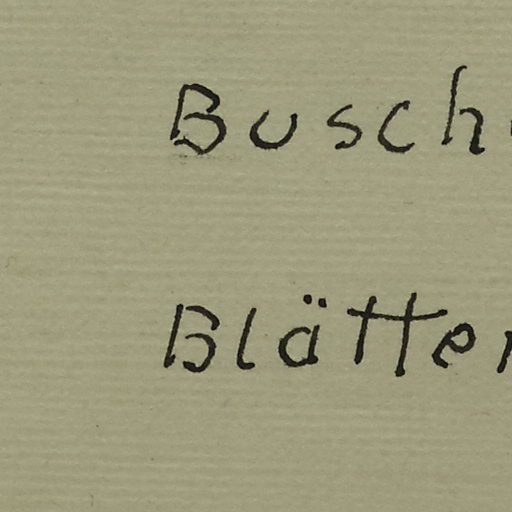 Busch
Blätter